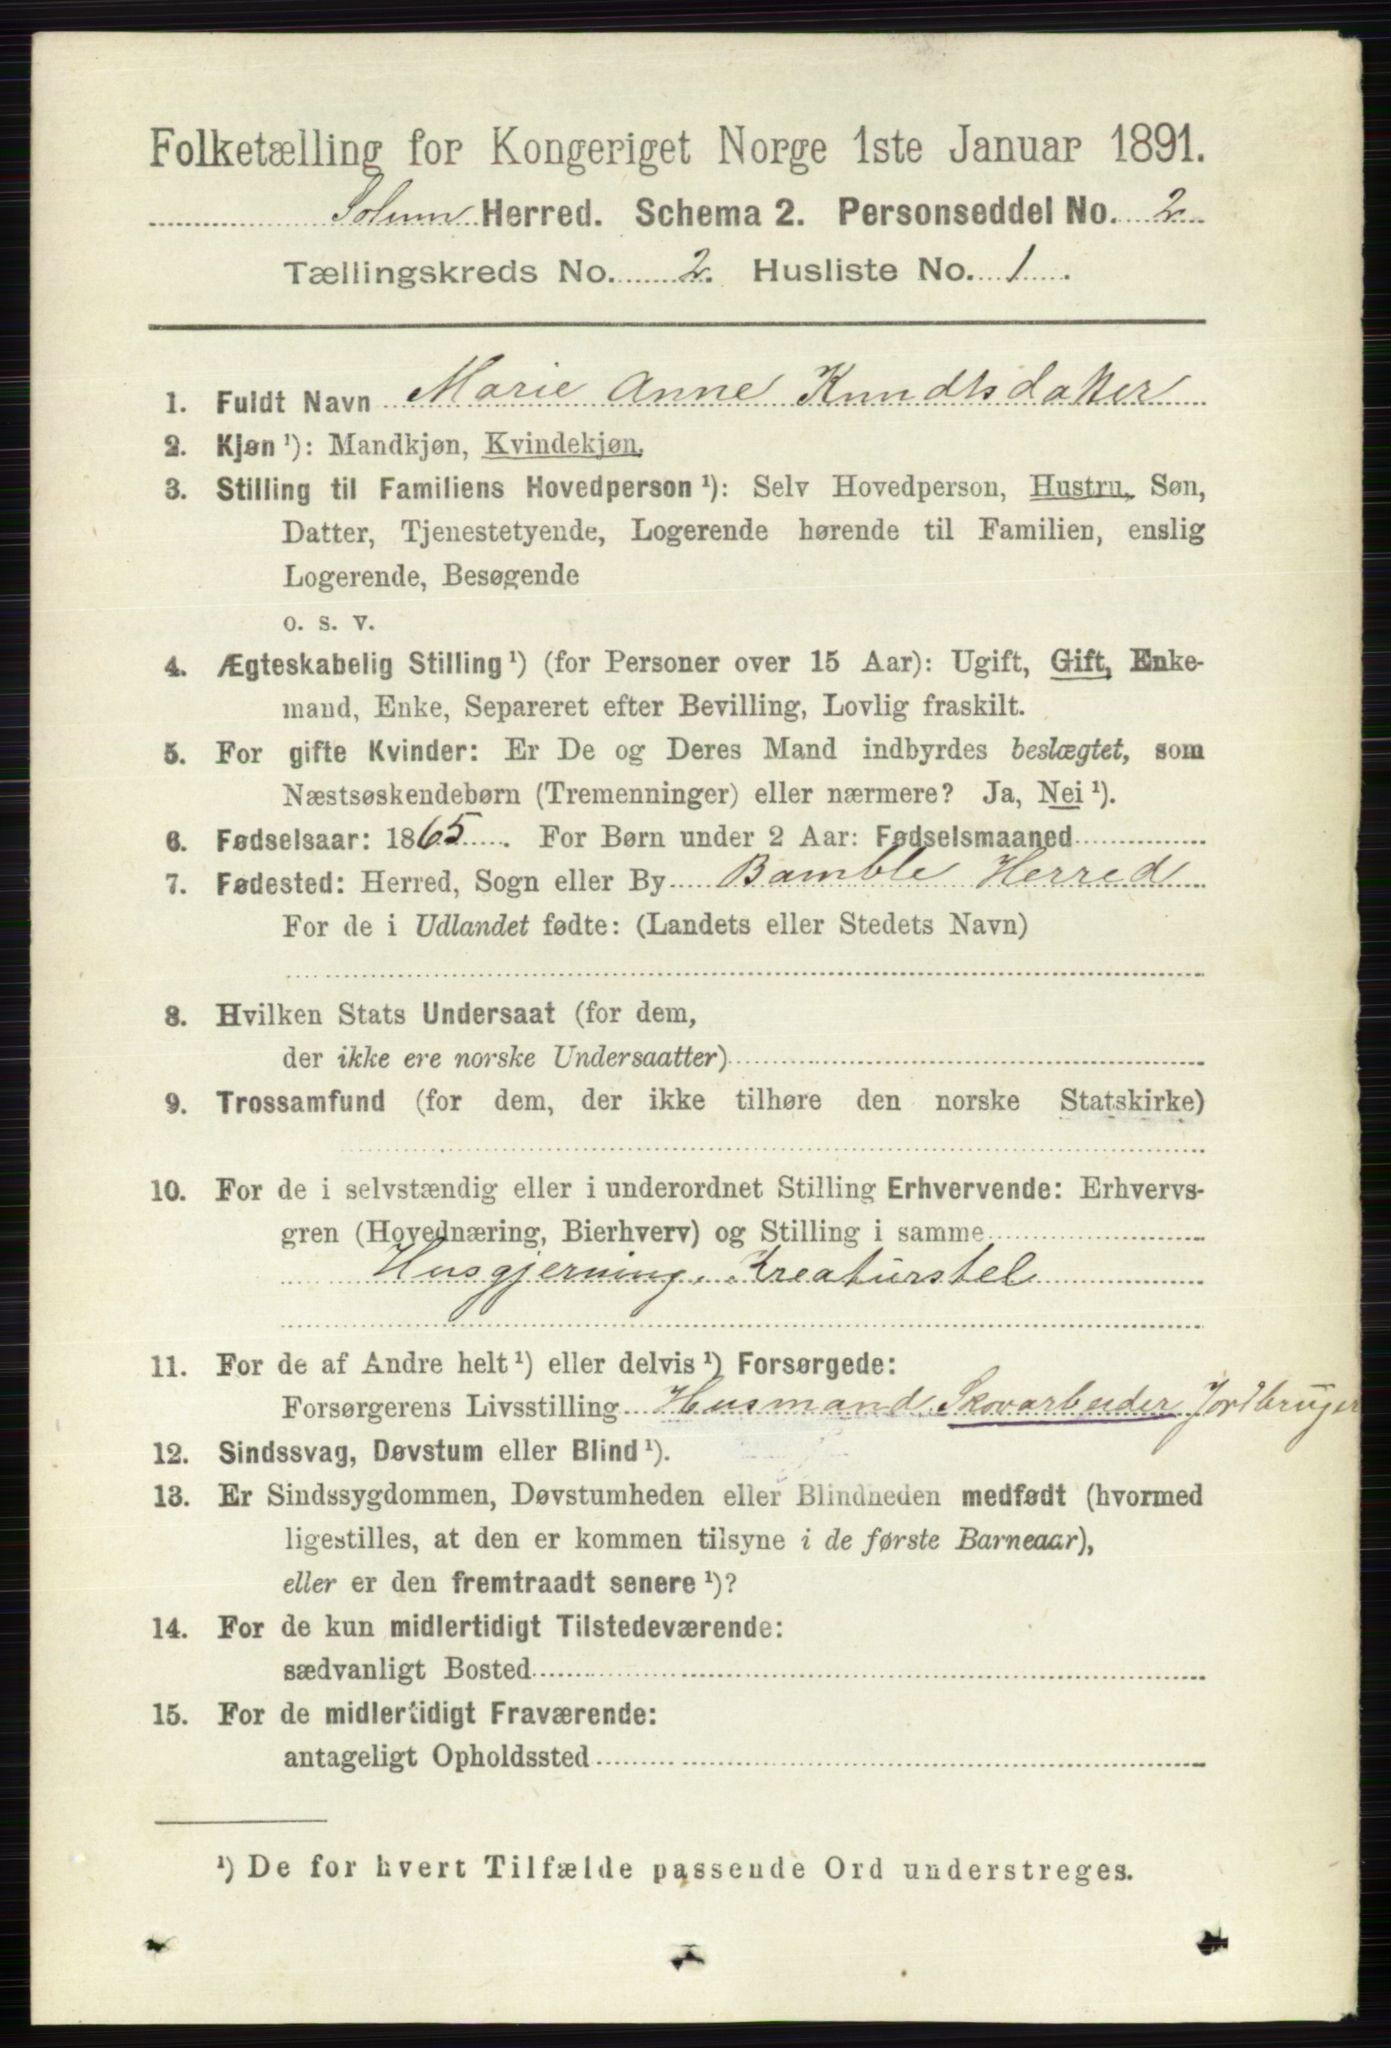 Folketælling for Kongeriget Norge 1ste Januar 1891.
Solum Herred. Schema 2. Personseddel No. 2
Tællingskreds No. 2. Husliste No. 1.
1. Fuldt Navn Marie Anne Knudtsdatter
2. Kjøn ¹): Mandkjøn, Kvindekjøn.
3. Stilling til Familiens Hovedperson ¹): Selv Hovedperson, Hustru, Søn,
Datter, Tjenestetyende, Logerende hørende til Familien, enslig
Logerende, Besøgende
o. s. v.
4. Ægteskabelig Stilling ¹) (for Personer over 15 Aar): Ugift, Gift, Enke-
mand, Enke, Separeret efter Bevilling, Lovlig fraskilt.
5. For gifte Kvinder: Er De og Deres Mand indbyrdes beslægtet, som
Næstsøskendebørn (Tremenninger) eller nærmere? Ja, Nei ¹).
6. Fødselsaar: 1865. For Børn under 2 Aar: Fødselsmaaned
7. Fødested: Herred, Sogn eller By Bamble Herred
For de i Udlandet fødte: (Landets eller Stedets Navn)
8. Hvilken Stats Undersaat (for dem,
der ikke ere norske Undersaatter)
9. Trossamfund (for dem, der ikke tilhøre den norske Statskirke)
10. For de i selvstændig eller i underordnet Stilling Erhvervende: Erhvervs-
gren (Hovednæring, Bierhverv) og Stilling i samme
Husgjerning. Kreaturstel
11. For de af Andre helt ¹) eller delvis ¹) Forsørgede:
Forsørgerens Livsstilling Husmand Skovarbeider Jordbruger
12. Sindssvag, Døvstum eller Blind ¹).
13. Er Sindssygdommen, Døvstumheden eller Blindheden medfødt (hvormed
ligestilles, at den er kommen tilsyne i de første Barneaar),
eller er den fremtraadt senere ¹)?
14. For de kun midlertidigt Tilstedeværende:
sædvanligt Bosted
15. For de midlertidigt Fraværende:
antageligt Opholdssted
¹) De for hvert Tilfælde passende Ord understreges.